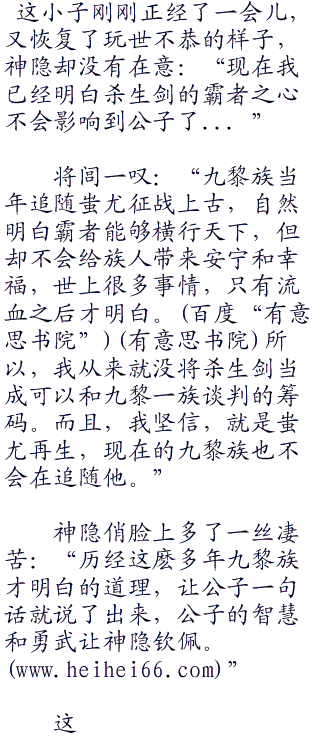 这小子刚刚正经了一会儿，
又恢复了玩世不恭的样子，
神隐却没有在意：“现在我
已经明白杀生剑的霸者之心
不会影响到公子了...”
将闾一叹：“九黎族当
年追随蚩尤征战上古，自然
明白霸者能够横行天下，但
却不会给族人带来安宁和幸
福，世上很多事情，只有流
血之后才明白。(百度“有意
思书院”)(有意思书院)所
以，我从来就没将杀生剑当
成可以和九黎一族谈判的筹
码。而且，我坚信，就是蚩
尤再生，现在的九黎族也不
会在追随他。”
神隐俏脸上多了一丝凄
苦：“历经这麽多年九黎族
才明白的道理，让公子一句
话就说了出来，公子的智慧
和勇武让神隐钦佩。
(www.heihei66.com)”
这